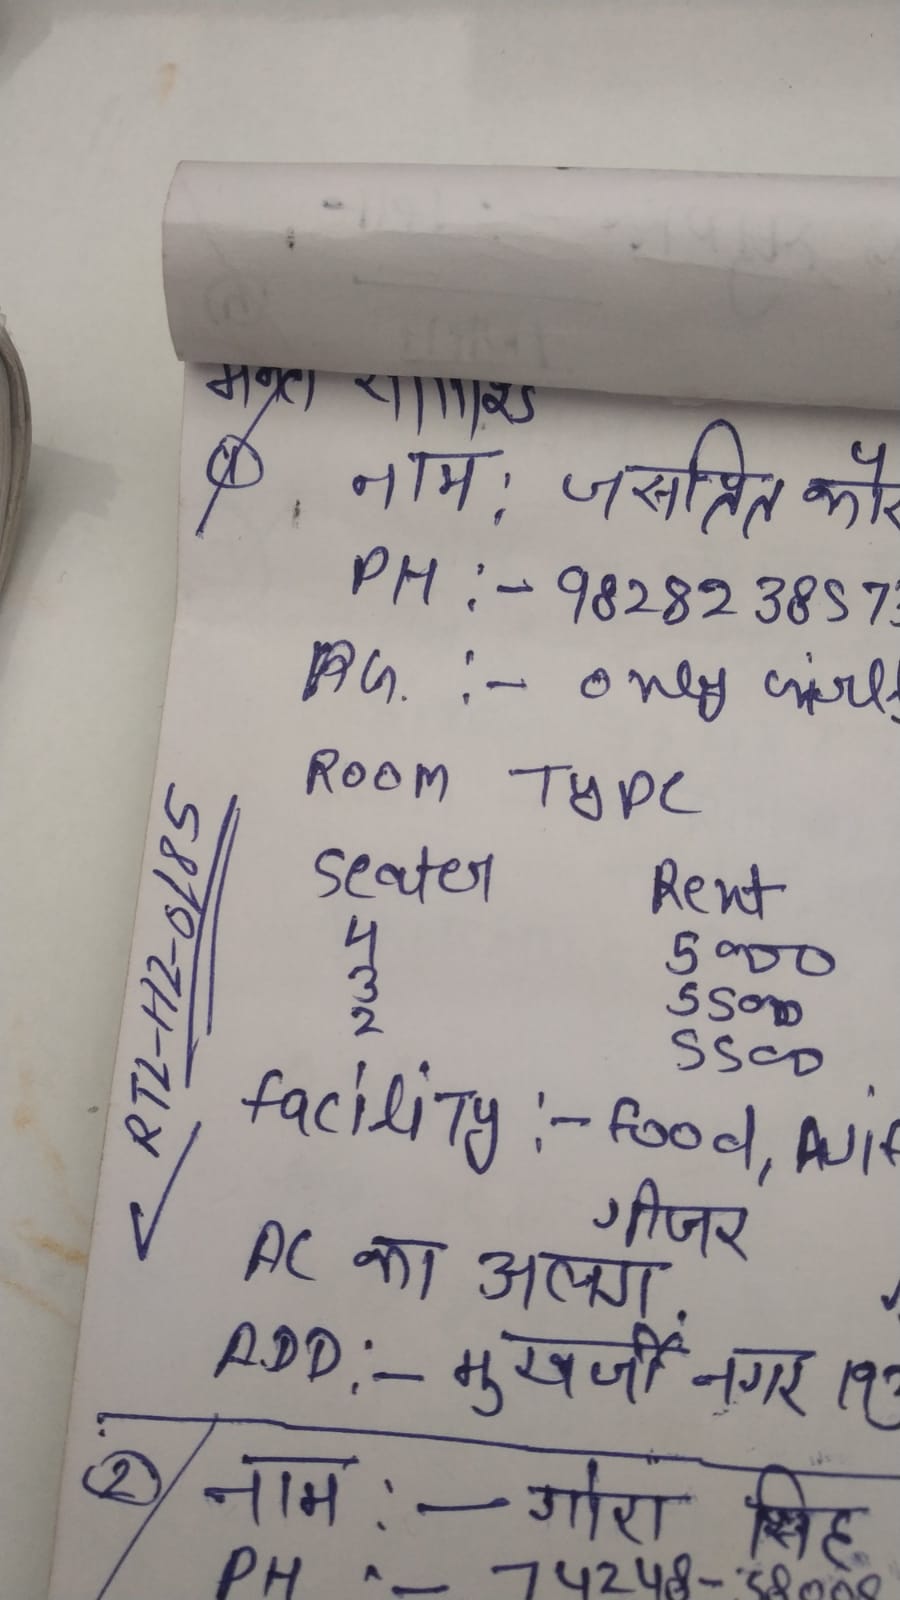 ①
नाम : जसप्रित कौर
PH :- 9828238573
PG. :- only girls
ROOM TYPE
Seater Rent
4 5000
3 5500
2 5500
RTL-HZ-0185
facility :- food,
गीजर
AC का अलग.
ADD :- मुखर्जी नगर 193
② नाम :- गोरा सिंह
PH :- 74248-58008